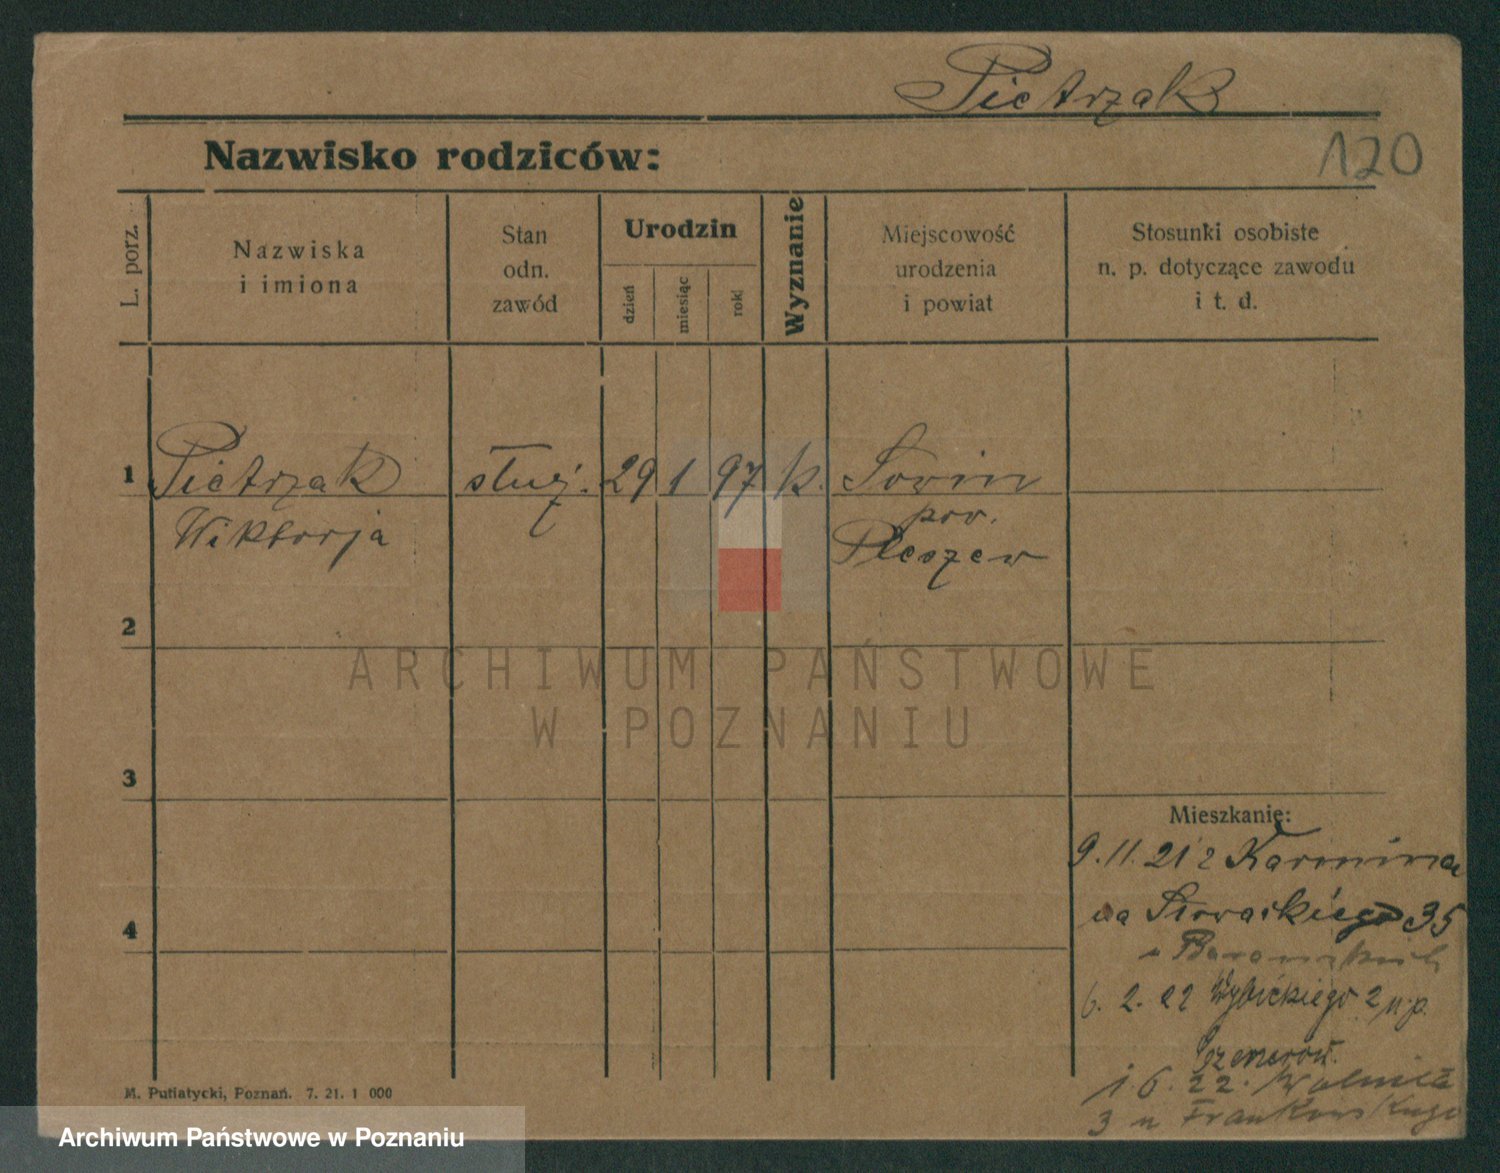 Pietrzak
Nazwisko rodziców:
120
L. porz.
Nazwiska
i imiona
Stan
odn.
zawód
Urodzin
dzień
miesiąc
rok
Wyznanie
Miejscowość
urodzenia
i powiat
Stosunki osobiste
n. p. dotyczące zawodu
i t. d.
1 Pietrzak służ. 29 1 97 k. Sowin
Wiktorja
pow.
Pleszew
2
ARCHIWUM PAŃSTWOWE
W POZNANIU
3
Mieszkanie:
9.11.21 z Karmina
na Słowackiego 35
4
6. 2. 22 Wybickiego 2
1 6. 22.
3 u Frankowskiego
M. Putiatycki, Poznań. 7. 21. 1 000
Archiwum Państwowe w Poznaniu